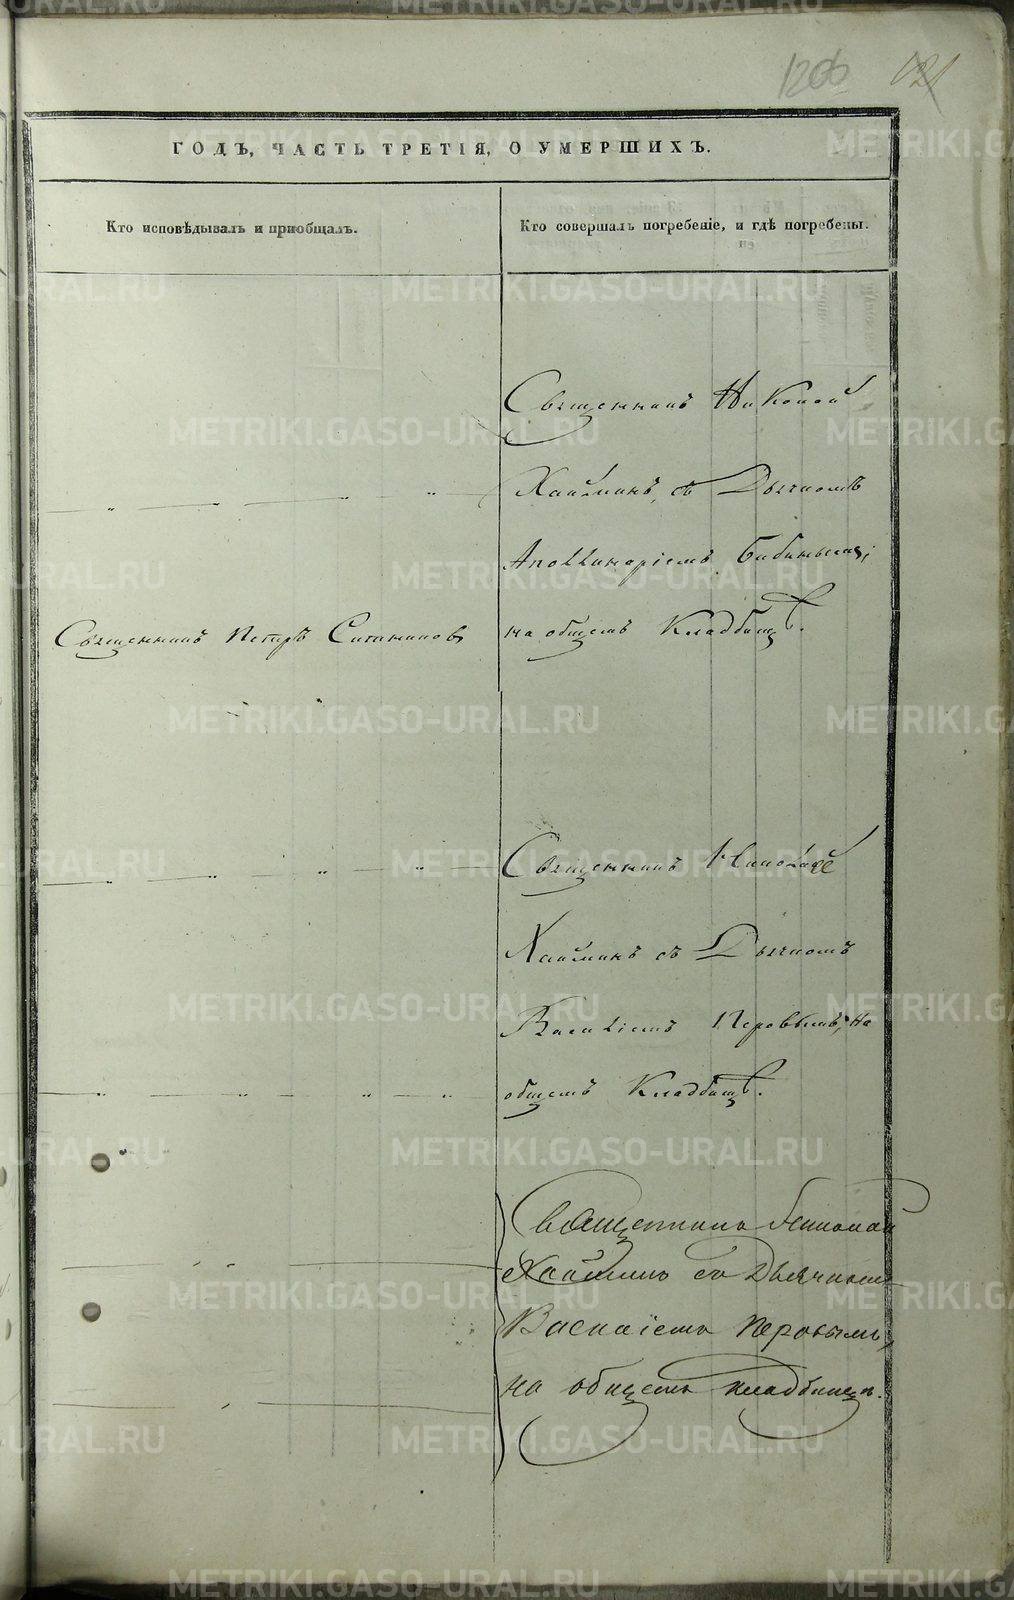 120б 121
ГОДЪ, ЧАСТЬ ТРЕТІЯ, О УМЕРШИХЪ.
Кто исповѣдывалъ и пріобщалъ.
Кто совершалъ погребеніе, и гдѣ погребены.
Священникъ Николай
Хаймин, съ Дьячкомъ
Аполлинаріемъ
Священникъ Петръ
на общемъ Кладбищѣ.
Священникъ Николай
Хайминъ съ Дьячкомъ
Василіемъ Перовымъ, на
общемъ Кладбищѣ.
Священникъ Николай
Хайминъ съ Дьячкомъ
Василіемъ Перовымъ,
на общемъ кладбищѣ.
METRIKI.GASO-URAL.RU